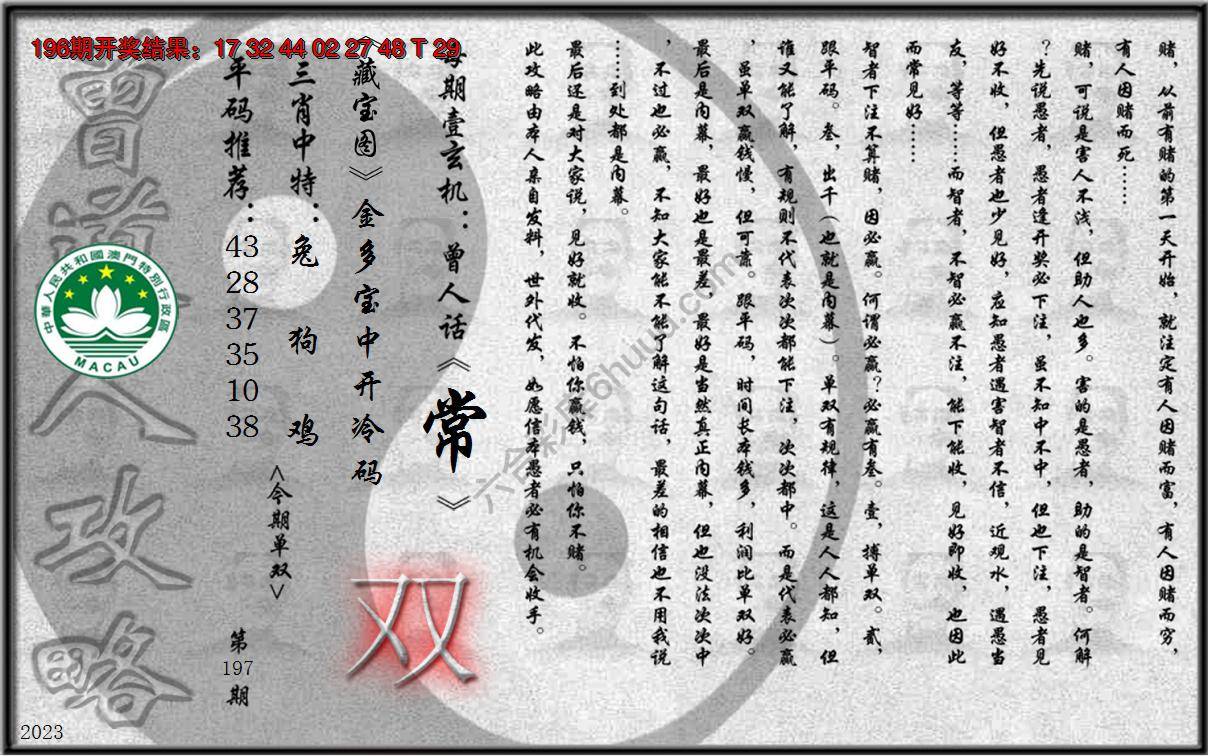 196期开奖结果：17 32 44 02 27 48 T 29
赌，从前有赌的第一天开始，就注定有人因赌而富，有人因赌而穷，
有人因赌而死……
赌，可说是害人不浅，但助人也多。害的是愚者，助的是智者。何解
？先说愚者，愚者逢开奖必下注，虽不知中不中，但也下注，愚者见
好不收，但愚者也少见好，应知愚者遇害智者不信，近观水，遇愚当
友，等等……而智者，不智必赢不注，能下能收，见好即收，也因此
而常见好……
智者下注不算赌，因必赢。何谓必赢？必赢有叁。壹，搏单双。贰，
跟平码。叁，出千（也就是内幕）。单双有规律，这是人人都知，但
谁又能了解，有规则不代表次次都能下注，次次都中。而是代表必赢
，虽单双赢钱慢，但可靠。跟平码，时间长本钱多，利润比单双好。
最后是内幕，最好也是最差，最好是当然真正内幕，但也没法次次中
，不过也必赢，不知大家能不能了解这句话，最差的相信也不用我说
……到处都是内幕。
最后还是对大家说，见好就收。不怕你赢钱，只怕你不赌。
此攻略由本人亲自发料，世外代发，如愿信本愚者必有机会收手。
每期壹玄机：曾人话《常》
《藏宝图》金多宝中开冷码
三肖中特：兔 狗 鸡
平码推荐：43 28 37 35 10 38
<今期单双>
双
第197期
曾道人攻略
中華人民共和國澳門特別行政區
MACAU
六合彩库6huuu.com
2023